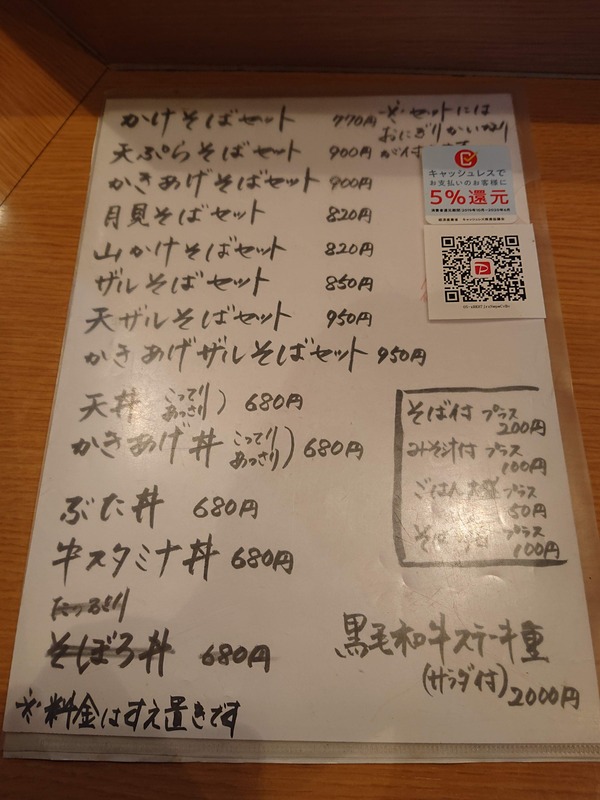 かけそばセット 770円
※セットには
おにぎりかいなり
が付
天ぷらそばセット 900円
かきあげそばセット 900円
月見そばセット 820円
山かけそばセット 820円
ザルそばセット 850円
天ザルそばセット 950円
かきあげザルそばセット 950円
キャッシュレスで
お支払いのお客様に
5%還元
消費者還元期間:2019年10月-2020年6月
天丼 こってり あっさり) 680円
かきあげ丼 こってり あっさり) 680円
ぶた丼 680円
牛スタミナ丼 680円
そぼろ丼 680円
※料金はすえ置きです
そば付 プラス
200円
みそ汁付 プラス
100円
ごはん大盛 プラス
50円
そば プラス
100円
黒毛和牛ステーキ重
(サラダ付) 2000円